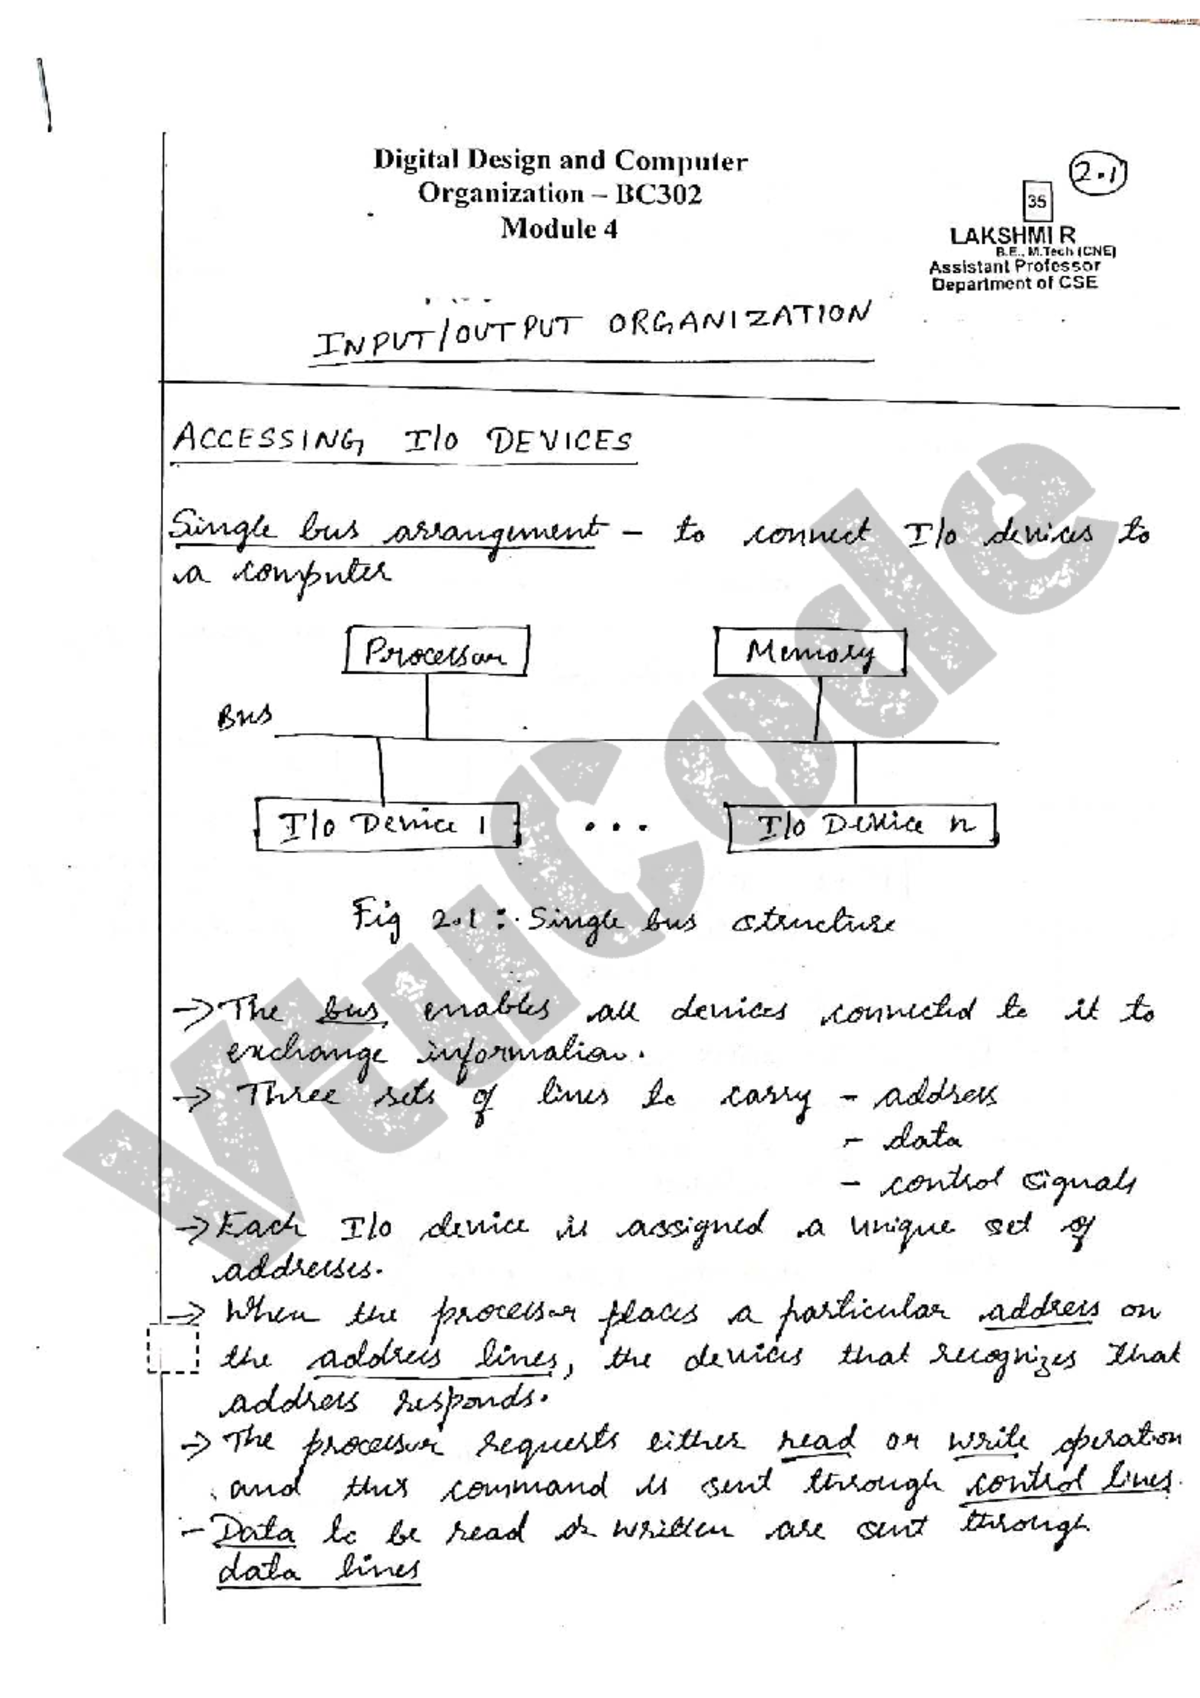 Digital Design and Computer
Organization – BC302
Module 4
2.1
35
LAKSHMI R
B.E., M.Tech (CNE)
Assistant Professor
Department of CSE
INPUT/OUTPUT ORGANIZATION
ACCESSING I/O DEVICES
Single bus arrangement – to connect I/o devices to
a computer
Processor
Memory
Bus
I/o Device 1
...
I/o Device n
Fig 2.1 : Single bus structure
→ The bus enables all devices connected to it to
exchange information.
→ Three sets of lines to carry – address
– data
– control signals
→ Each I/o device is assigned a unique set of
addresses.
→ When the processor places a particular address on
the address lines, the devices that recognizes that
address responds.
→ The processor requests either read or write operation
and this command is sent through control lines.
– Data to be read or written are sent through
data lines
VtuCode